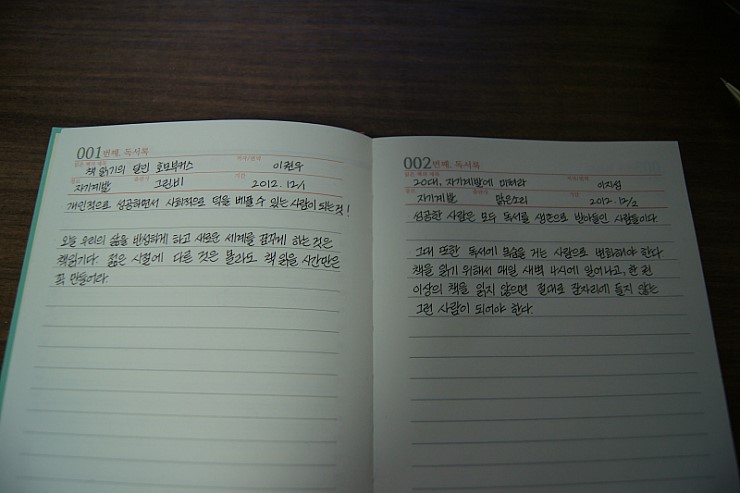 001번째. 독서록
읽은 책의 제목 책 읽기의 달인 호모부커스 저자/역자 이권우
분류 자기계발 출판사 그린비 기간 2012. 12/1
개인적으로 성공하면서 사회적으로 덕을 베풀 수 있는 사람이 되는 것!
오늘 우리의 삶을 반성하게 하고 새로운 세계를 꿈꾸게 하는 것은
책읽기다. 젊은 시절에 다른 것은 몰라도 책 읽을 시간만은
꼭 만들어라.
002번째. 독서록
읽은 책의 제목 20대, 자기계발에 미쳐라 저자/역자 이지성
분류 자기계발 출판사 맑은소리 기간 2012. 12/2
성공한 사람은 모두 독서를 생존으로 받아들인 사람들이다.
그대 또한 독서에 목숨을 거는 사람으로 변화해야 한다.
책을 읽기 위해서 매일 새벽 4시에 일어나고, 한 권
이상의 책을 읽지 않으면 절대로 잠자리에 들지 않는
그런 사람이 되어야 한다.